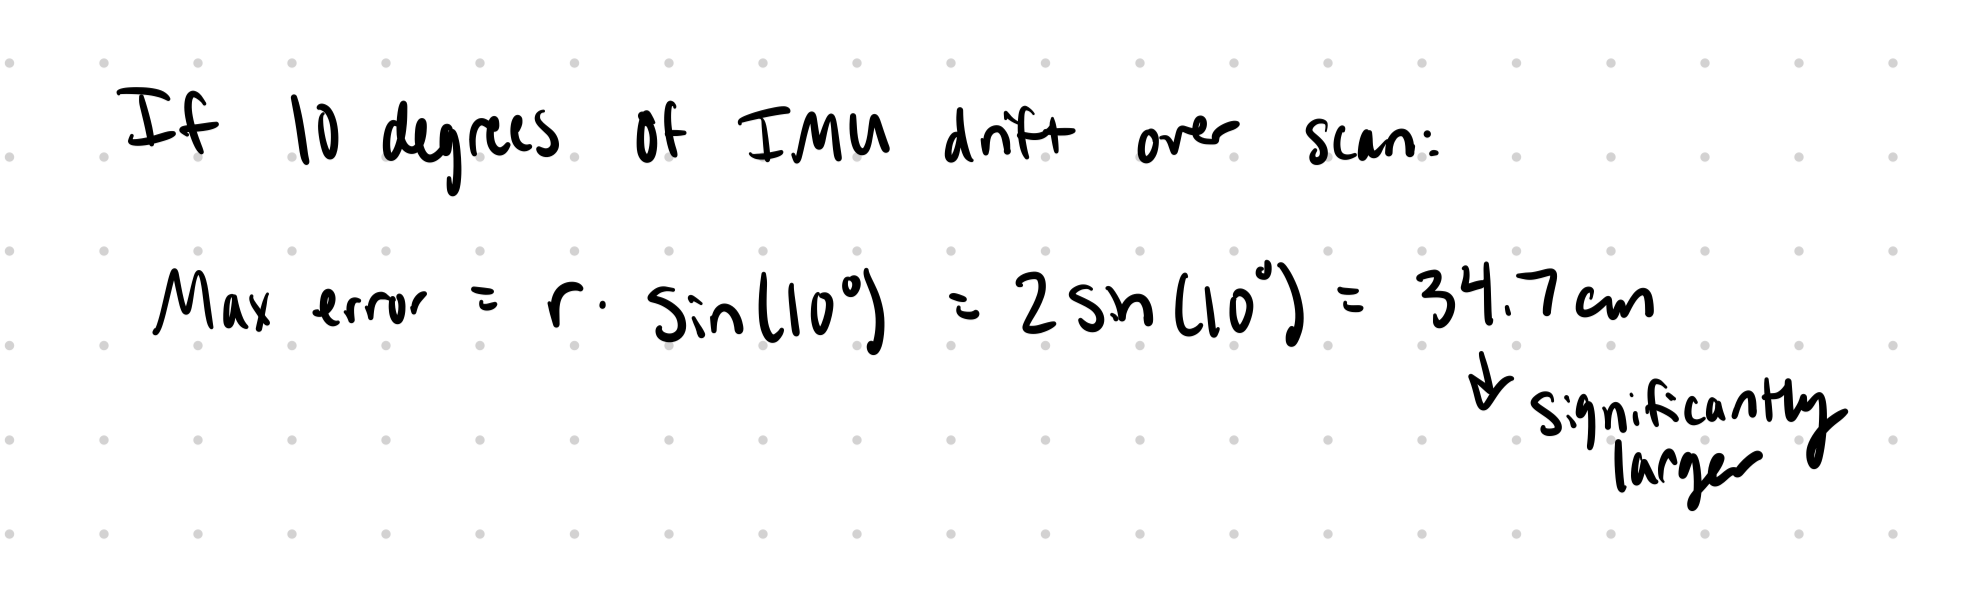 If 10 degrees of IMU drift over scan:
Max error = r · sin(10°) = 2 sin(10°) = 34.7 cm
↓ significantly
larger